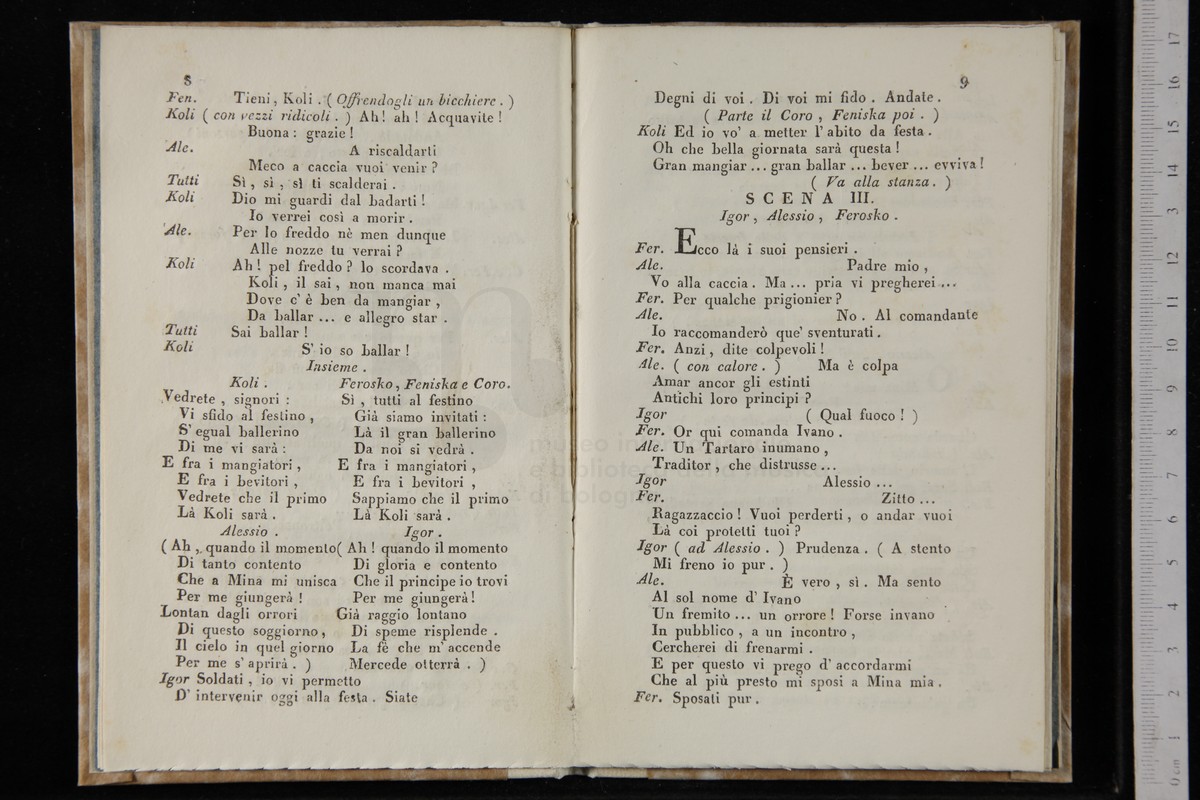 8
Fen. Tieni, Koli. (Offrendogli un bicchiere.)
Koli (con vezzi ridicoli.) Ah! ah! Acquavite!
Buona: grazie!
Ale. A riscaldarti
Meco a caccia vuoi venir?
Tutti Sì, sì, sì ti scalderai.
Koli Dio mi guardi dal badarti!
Io verrei così a morir.
Ale. Per lo freddo nè men dunque
Alle nozze tu verrai?
Koli Ah! pel freddo? lo scordava.
Koli, il sai, non manca mai
Dove c'è ben da mangiar,
Da ballar... e allegro star.
Tutti Sai ballar!
Koli S'io so ballar!
Insieme.
Koli.
Vedrete, signori:
Vi sfido al festino,
S'egual ballerino
Di me vi sarà:
E fra i mangiatori,
E fra i bevitori,
Vedrete che il primo
Là Koli sarà.
Ferosko, Feniska e Coro.
Sì, tutti al festino
Già siamo invitati:
Là il gran ballerino
Da noi si vedrà.
E fra i mangiatori,
E fra i bevitori,
Sappiamo che il primo
Là Koli sarà.
Alessio.
(Ah, quando il momento
Di tanto contento
Che a Mina mi unisca
Per me giungerà!
Lontan dagli orrori
Di questo soggiorno,
Il cielo in quel giorno
Per me s'aprirà.)
Igor.
(Ah! quando il momento
Di gloria e contento
Che il principe io trovi
Per me giungerà!
Già raggio lontano
Di speme risplende.
La fè che m'accende
Mercede otterrà.)
Igor Soldati, io vi permetto
D'intervenir oggi alla festa. Siate
9
Degni di voi. Di voi mi fido. Andate.
(Parte il Coro, Feniska poi.)
Koli Ed io vo' a metter l'abito da festa.
Oh che bella giornata sarà questa!
Gran mangiar... gran ballar... bever... evviva!
(Va alla stanza.)
SCENA III.
Igor, Alessio, Ferosko.
Fer. Ecco là i suoi pensieri.
Ale. Padre mio,
Vo alla caccia. Ma... pria vi pregherei...
Fer. Per qualche prigionier?
Ale. No. Al comandante
Io raccomanderò que' sventurati.
Fer. Anzi, dite colpevoli!
Ale. (con calore.) Ma è colpa
Amar ancor gli estinti
Antichi loro principi?
Igor (Qual fuoco!)
Fer. Or qui comanda Ivano.
Ale. Un Tartaro inumano,
Traditor, che distrusse...
Igor Alessio...
Fer. Zitto...
Ragazzaccio! Vuoi perderti, o andar vuoi
Là coi protetti tuoi?
Igor (ad Alessio.) Prudenza. (A stento
Mi freno io pur.)
Ale. È vero, sì. Ma sento
Al sol nome d'Ivano
Un fremito... un orrore! Forse invano
In pubblico, a un incontro,
Cercherei di frenarmi.
E per questo vi prego d'accordarmi
Che al più presto mi sposi a Mina mia.
Fer. Sposati pur.